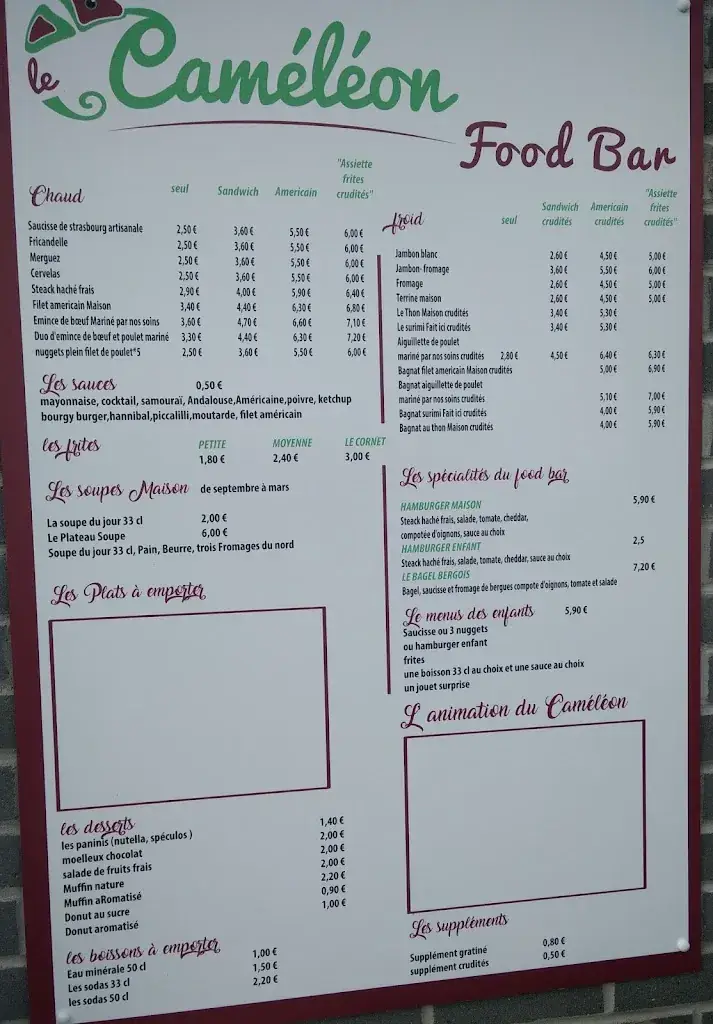 le Caméléon
Food Bar
Chaud seul Sandwich Americain "Assiette frites crudités"
Saucisse de strasbourg artisanale 2,50 € 3,60 € 5,50 € 6,00 €
Fricandelle 2,50 € 3,60 € 5,50 € 6,00 €
Merguez 2,50 € 3,60 € 5,50 € 6,00 €
Cervelas 2,50 € 3,60 € 5,50 € 6,00 €
Steack haché frais 2,90 € 4,00 € 5,90 € 6,40 €
Filet americain Maison 3,40 € 4,40 € 6,30 € 6,80 €
Emince de bœuf Mariné par nos soins 3,60 € 4,70 € 6,60 € 7,10 €
Duo d'emince de bœuf et poulet mariné 3,30 € 4,40 € 6,30 € 7,20 €
nuggets plein filet de poulet*5 2,50 € 3,60 € 5,50 € 6,00 €
Les sauces 0,50 €
mayonnaise, cocktail, samouraï, Andalouse,Américaine,poivre, ketchup
bourgy burger,hannibal,piccalilli,moutarde, filet américain
les frites PETITE MOYENNE LE CORNET
1,80 € 2,40 € 3,00 €
Les soupes Maison de septembre à mars
La soupe du jour 33 cl 2,00 €
Le Plateau Soupe 6,00 €
Soupe du jour 33 cl, Pain, Beurre, trois Fromages du nord
Les Plats à emporter
les desserts
les paninis (nutella, spéculos ) 1,40 €
moelleux chocolat 2,00 €
salade de fruits frais 2,00 €
Muffin nature 2,00 €
Muffin aRomatisé 2,20 €
Donut au sucre 0,90 €
Donut aromatisé 1,00 €
les boissons à emporter
Eau minérale 50 cl 1,00 €
Les sodas 33 cl 1,50 €
les sodas 50 cl 2,20 €
froid seul Sandwich crudités Americain crudités "Assiette frites crudités"
Jambon blanc 2,60 € 4,50 € 5,00 €
Jambon- fromage 3,60 € 5,50 € 6,00 €
Fromage 2,60 € 4,50 € 5,00 €
Terrine maison 2,60 € 4,50 € 5,00 €
Le Thon Maison crudités 3,40 € 5,30 €
Le surimi Fait ici crudités 3,40 € 5,30 €
Aiguillette de poulet
mariné par nos soins crudités 2,80 € 4,50 € 6,40 € 6,30 €
Bagnat filet americain Maison crudités 5,00 € 6,90 €
Bagnat aiguillette de poulet
mariné par nos soins crudités 5,10 € 7,00 €
Bagnat surimi Fait ici crudités 4,00 € 5,90 €
Bagnat au thon Maison crudités 4,00 € 5,90 €
Les spécialités du food bar
HAMBURGER MAISON 5,90 €
Steack haché frais, salade, tomate, cheddar,
compotée d'oignons, sauce au choix
HAMBURGER ENFANT 2,5
Steack haché frais, salade, tomate, cheddar, sauce au choix
LE BAGEL BERGOIS 7,20 €
Bagel, saucisse et fromage de bergues compote d'oignons, tomate et salade
Le menus des enfants 5,90 €
Saucisse ou 3 nuggets
ou hamburger enfant
frites
une boisson 33 cl au choix et une sauce au choix
un jouet surprise
L animation du Caméléon
Les suppléments
Supplément gratiné 0,80 €
supplément crudités 0,50 €